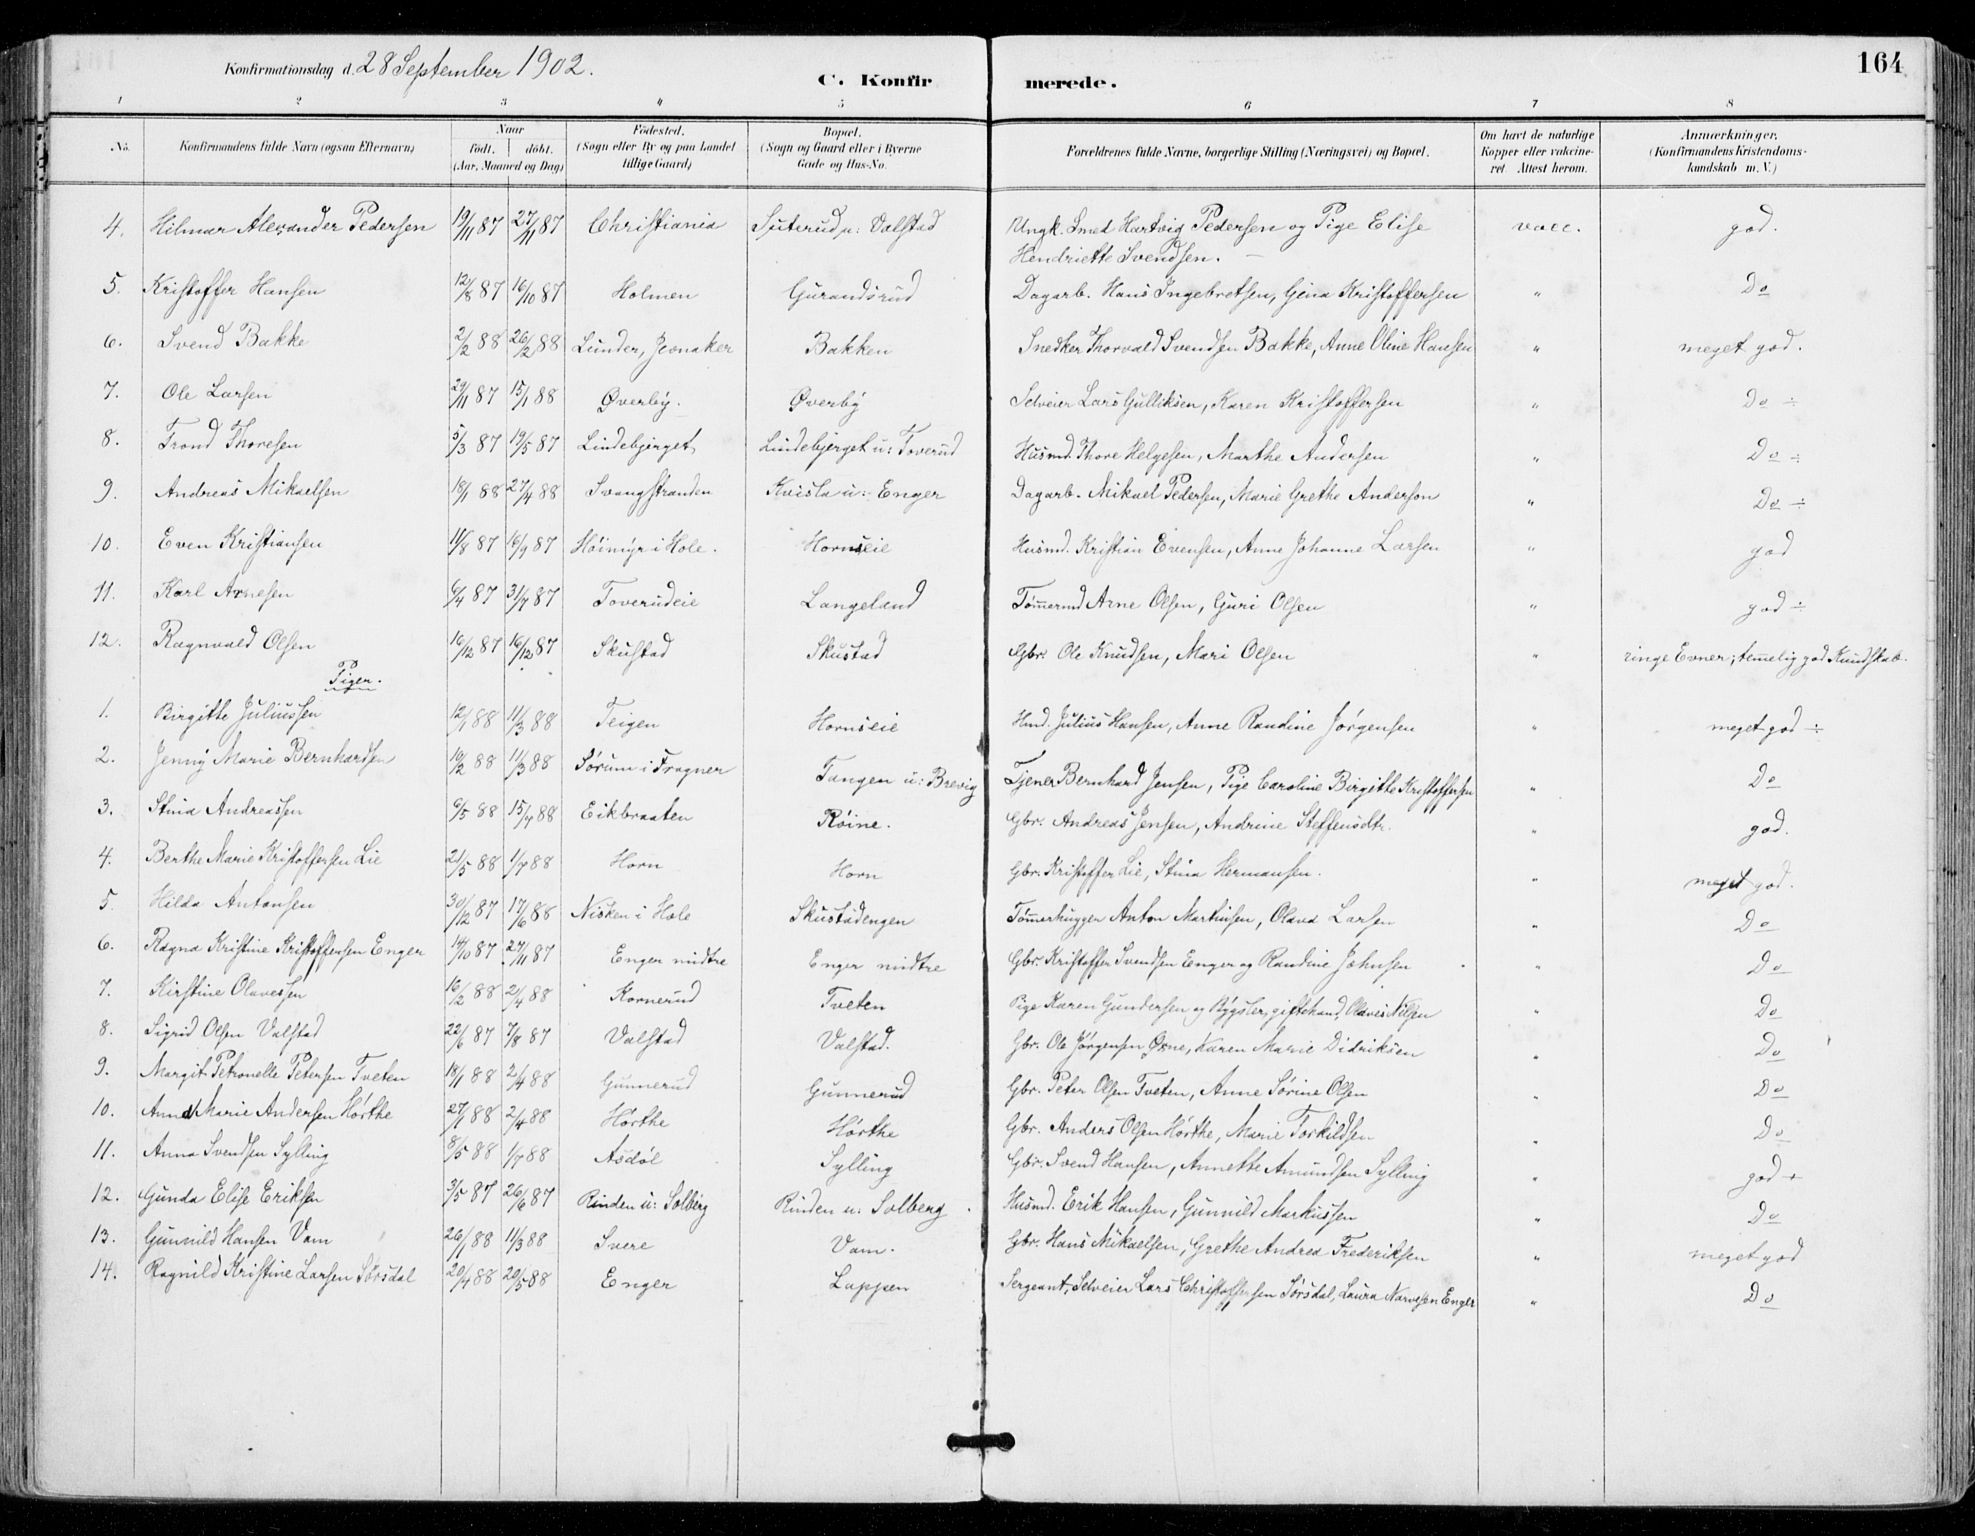 164
Konfirmationsdag d. 28 September 1902.
C. Konfirmerede.
1 2 3 4 5 6 7 8
No. Konfirmandens fulde Navn (ogsaa Efternavn) Naar födt. döbt. (Aar, Maaned og Dag) Födested. (Sogn eller By og paa Landet tillige Gaard) Bopæl. (Sogn og Gaard eller i Byerne Gade og Hus-No. Forældrenes fulde Navne, borgerlige Stilling (Næringsvei) og Bopæl. Om havt de naturlige Kopper eller vakcineret. Attest herom. Anmærkninger. (Konfirmandens Kristendomskundskab m. V.)
4. Hilmar Alexander Pedersen 19/11 87 27/11 87 Christiania u: Valstad Ungk. Smed Hartvig Pedersen og Pige Elise vacc. god.
Hendriette Svendsen.
5. Kristoffer Hansen 12/8 87 16/10 87 Holmen Gurandsrud Dagarb. Hans Ingebretsen, Gina Kristoffersen " Do
6. Svend Bakke 2/2 88 26/2 88 Lunder, Jevnaker Bakken Snedker Thorvald Svendsen Bakke, Anne Oline Hansen " meget god.
7. Ole Larsen 29/11 87 15/1 88 Øverby. Øverby Selveier Lars Gulliksen, Karen Kristoffersen " Do ÷
8. Trond Thoresen 5/3 87 19/5 87 Lindebjerget Lindebjerget u: Toverud Husmd. Thore Helgesen, Marthe Andersen " Do ÷
9. Andreas Mikaelsen 18/1 88 27/4 88 Svangstranden Kvisla u: Enger Dagarb. Mikael Pedersen, Marie Grethe Anderson " Do ÷
10. Even Kristiansen 11/8 87 16/9 87 Höimyr i Hole. Hornseie Husmd. Kristian Evensen, Anne Johanne Larsen " god
11. Karl Arnesen 6/4 87 31/7 87 Toverudeie Langeland Tømermd Arne Olsen, Guri Olsen " god ÷
12. Ragnvald Olsen 16/12 87 Skustad Skustad Gbr. Ole Knudsen, Mari Olsen " ringe Evner; temelig god Kundskab.
Piger.
1. Birgitte Juliussen 12/1 88 11/3 88 Teigen Hornseie Hmd. Julius Hansen, Anne Randine Jørgensen " meget god ÷
2. Jenny Marie Bernhardsen 19/2 88 11/3 88 Sørum i Fragner Tangen u: Brevig Tjener Bernhard Jensen, Pige Caroline Birgitte Kristoffersen " Do
3. Stina Andreassen 6/5 88 15/7 88 Eikbraaten Røine. Gbr. Andreas Jensen, Andrine Steffensdtr. " god.
4. Berthe Marie Kristoffersen Lie 21/5 88 1/7 88 Horn Horn Gbr. Kristoffer Lie, Stina Hermansen. " meget god.
5. Hilda Antonsen 30/12 87 17/6 88 Nisken i Hole Skustadengen Tømerhugger Anton Martinsen, Olava Larsen " Do
6. Ragna Kristine Kristoffersen Enger 14/10 87 27/11 87 Enger midtre Enger midtre Gbr. Kristoffer Svendsen Enger og Randine Johnsen " Do
7. Kirstine Olavessen 16/2 88 2/4 88 Kornerud Tveten Pige Karen Gundersen og Bygsler, giftehand, Olaves Nilsen " Do
8. Sigrid Olsen Valstad 22/6 87 7/8 87 Valstad Valstad. Gbr. Ole Jørgensen Øxne, Karen Marie Didriksen " Do
9. Margit Petronelle Petersen Tveten 18/1 88 2/4 88 Gunnerud Gunnerud Gbr. Peter Olsen Tveten, Anne Sørine Olsen " Do
10. Anna Marie Andersen Hørthe 27/1 88 2/4 88 Hørthe Hørthe Gbr. Anders Olsen Hørthe, Marie Torkildsen " Do
11. Anna Svendsen Sylling 8/5 88 1/7 88 Asdøl Sylling Gbr. Svend Hansen, Annette Amundsen Sylling " god +
12. Gunda Elise Eriksen 3/5 87 26/6 87 Rinden u: Solberg Rinden u: Solberg Husmd. Erik Hansen, Gunnild Markussen " Do
13. Gunnild Hansen Vam 26/1 88 11/3 88 Svere Vam. Gbr. Hans Mikaelsen, Grethe Andrea Frederiksen " meget god
14. Ragnild Kristine Larsen Sørsdal 20/4 88 20/5 88 Enger Lappen Sergeant, Selveier Lars Christoffersen Sørsdal, Laura Narvesen Enger " Do